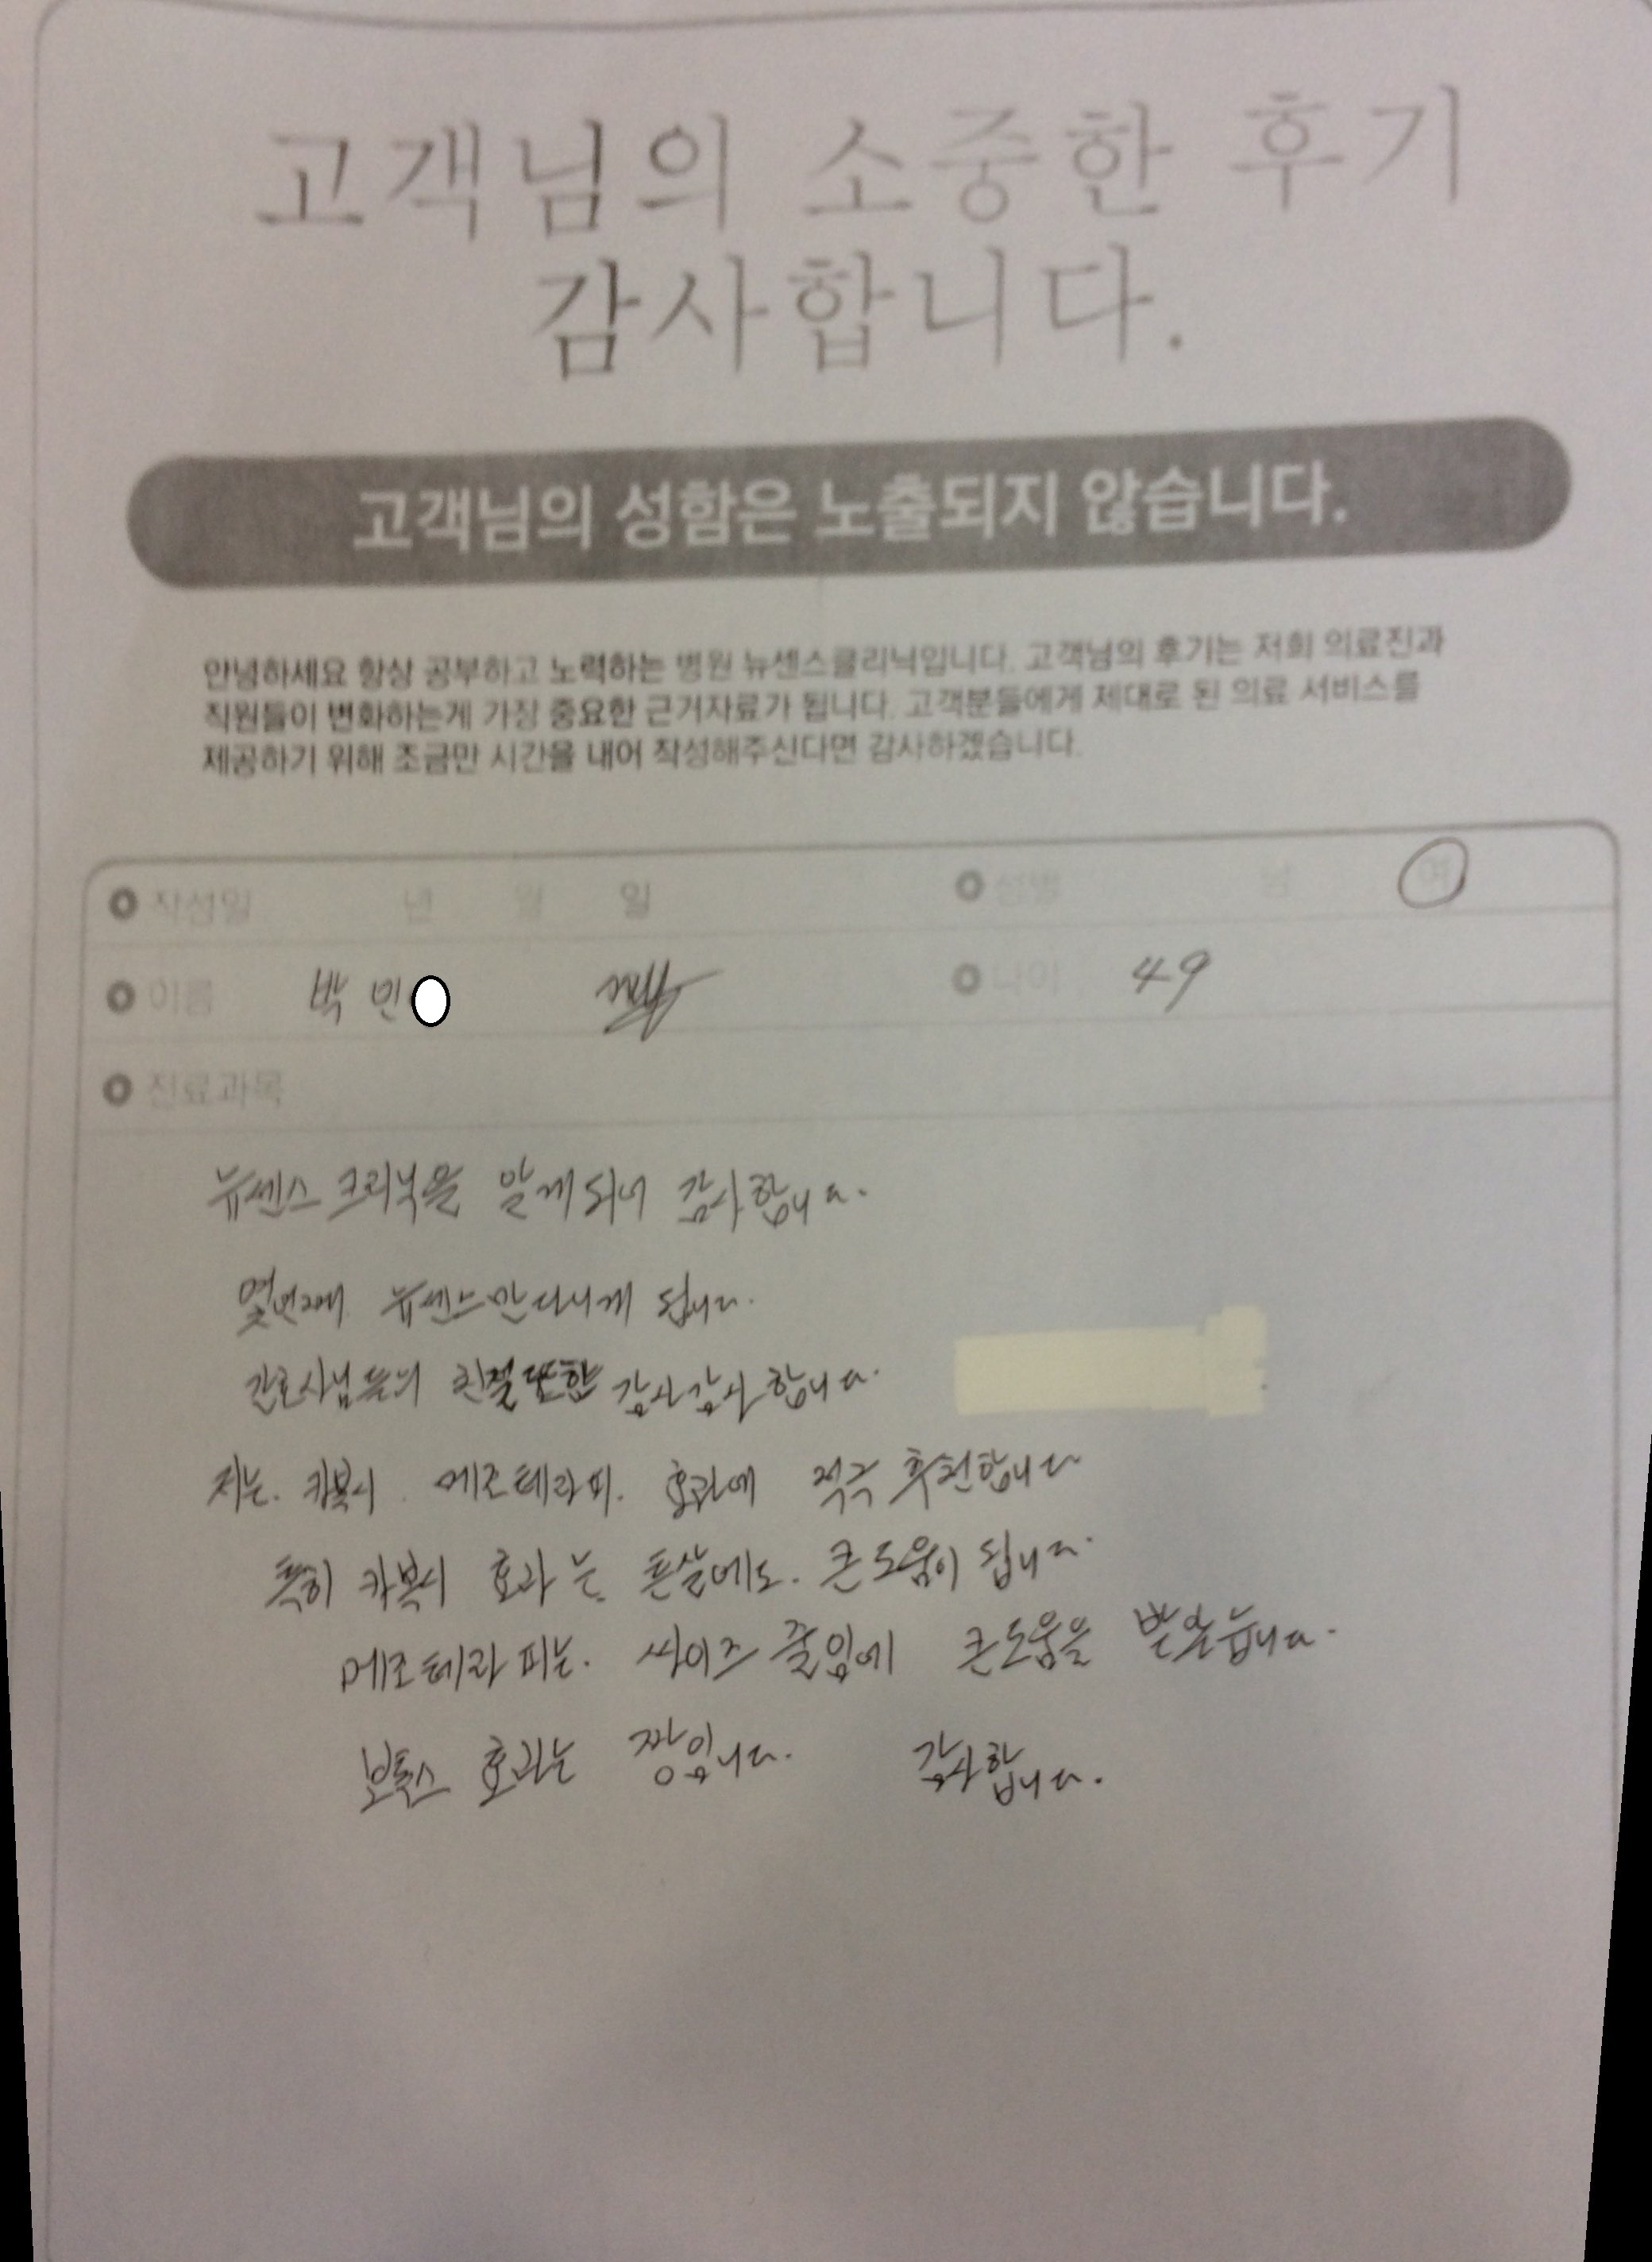 고객님의 소중한 후기
감사합니다.
고객님의 성함은 노출되지 않습니다.
안녕하세요 항상 공부하고 노력하는 병원 뉴센스클리닉입니다. 고객님의 후기는 저희 의료진과
직원들이 변화하는게 가장 중요한 근거자료가 됩니다. 고객분들에게 제대로 된 의료 서비스를
제공하기 위해 조금만 시간을 내어 작성해주신다면 감사하겠습니다.
작성일 년 월 일 성별 남 여
이름 박민 나이 49
진료과목
뉴센스 크리닉을 알게되어 감사합니다.
몇번째 뉴센스만 다니게 됩니다.
간호사님들의 친절 또한 감사감사 합니다.
저는. 카복시. 메조테라피. 효과에 적극 추천합니다
특히 카복시 효과는 튼살에도. 큰도움이 됩니다.
메조테라피는. 싸이즈 줄임에 큰도움을 받았습니다.
보톡스 효과는 짱입니다. 감사합니다.